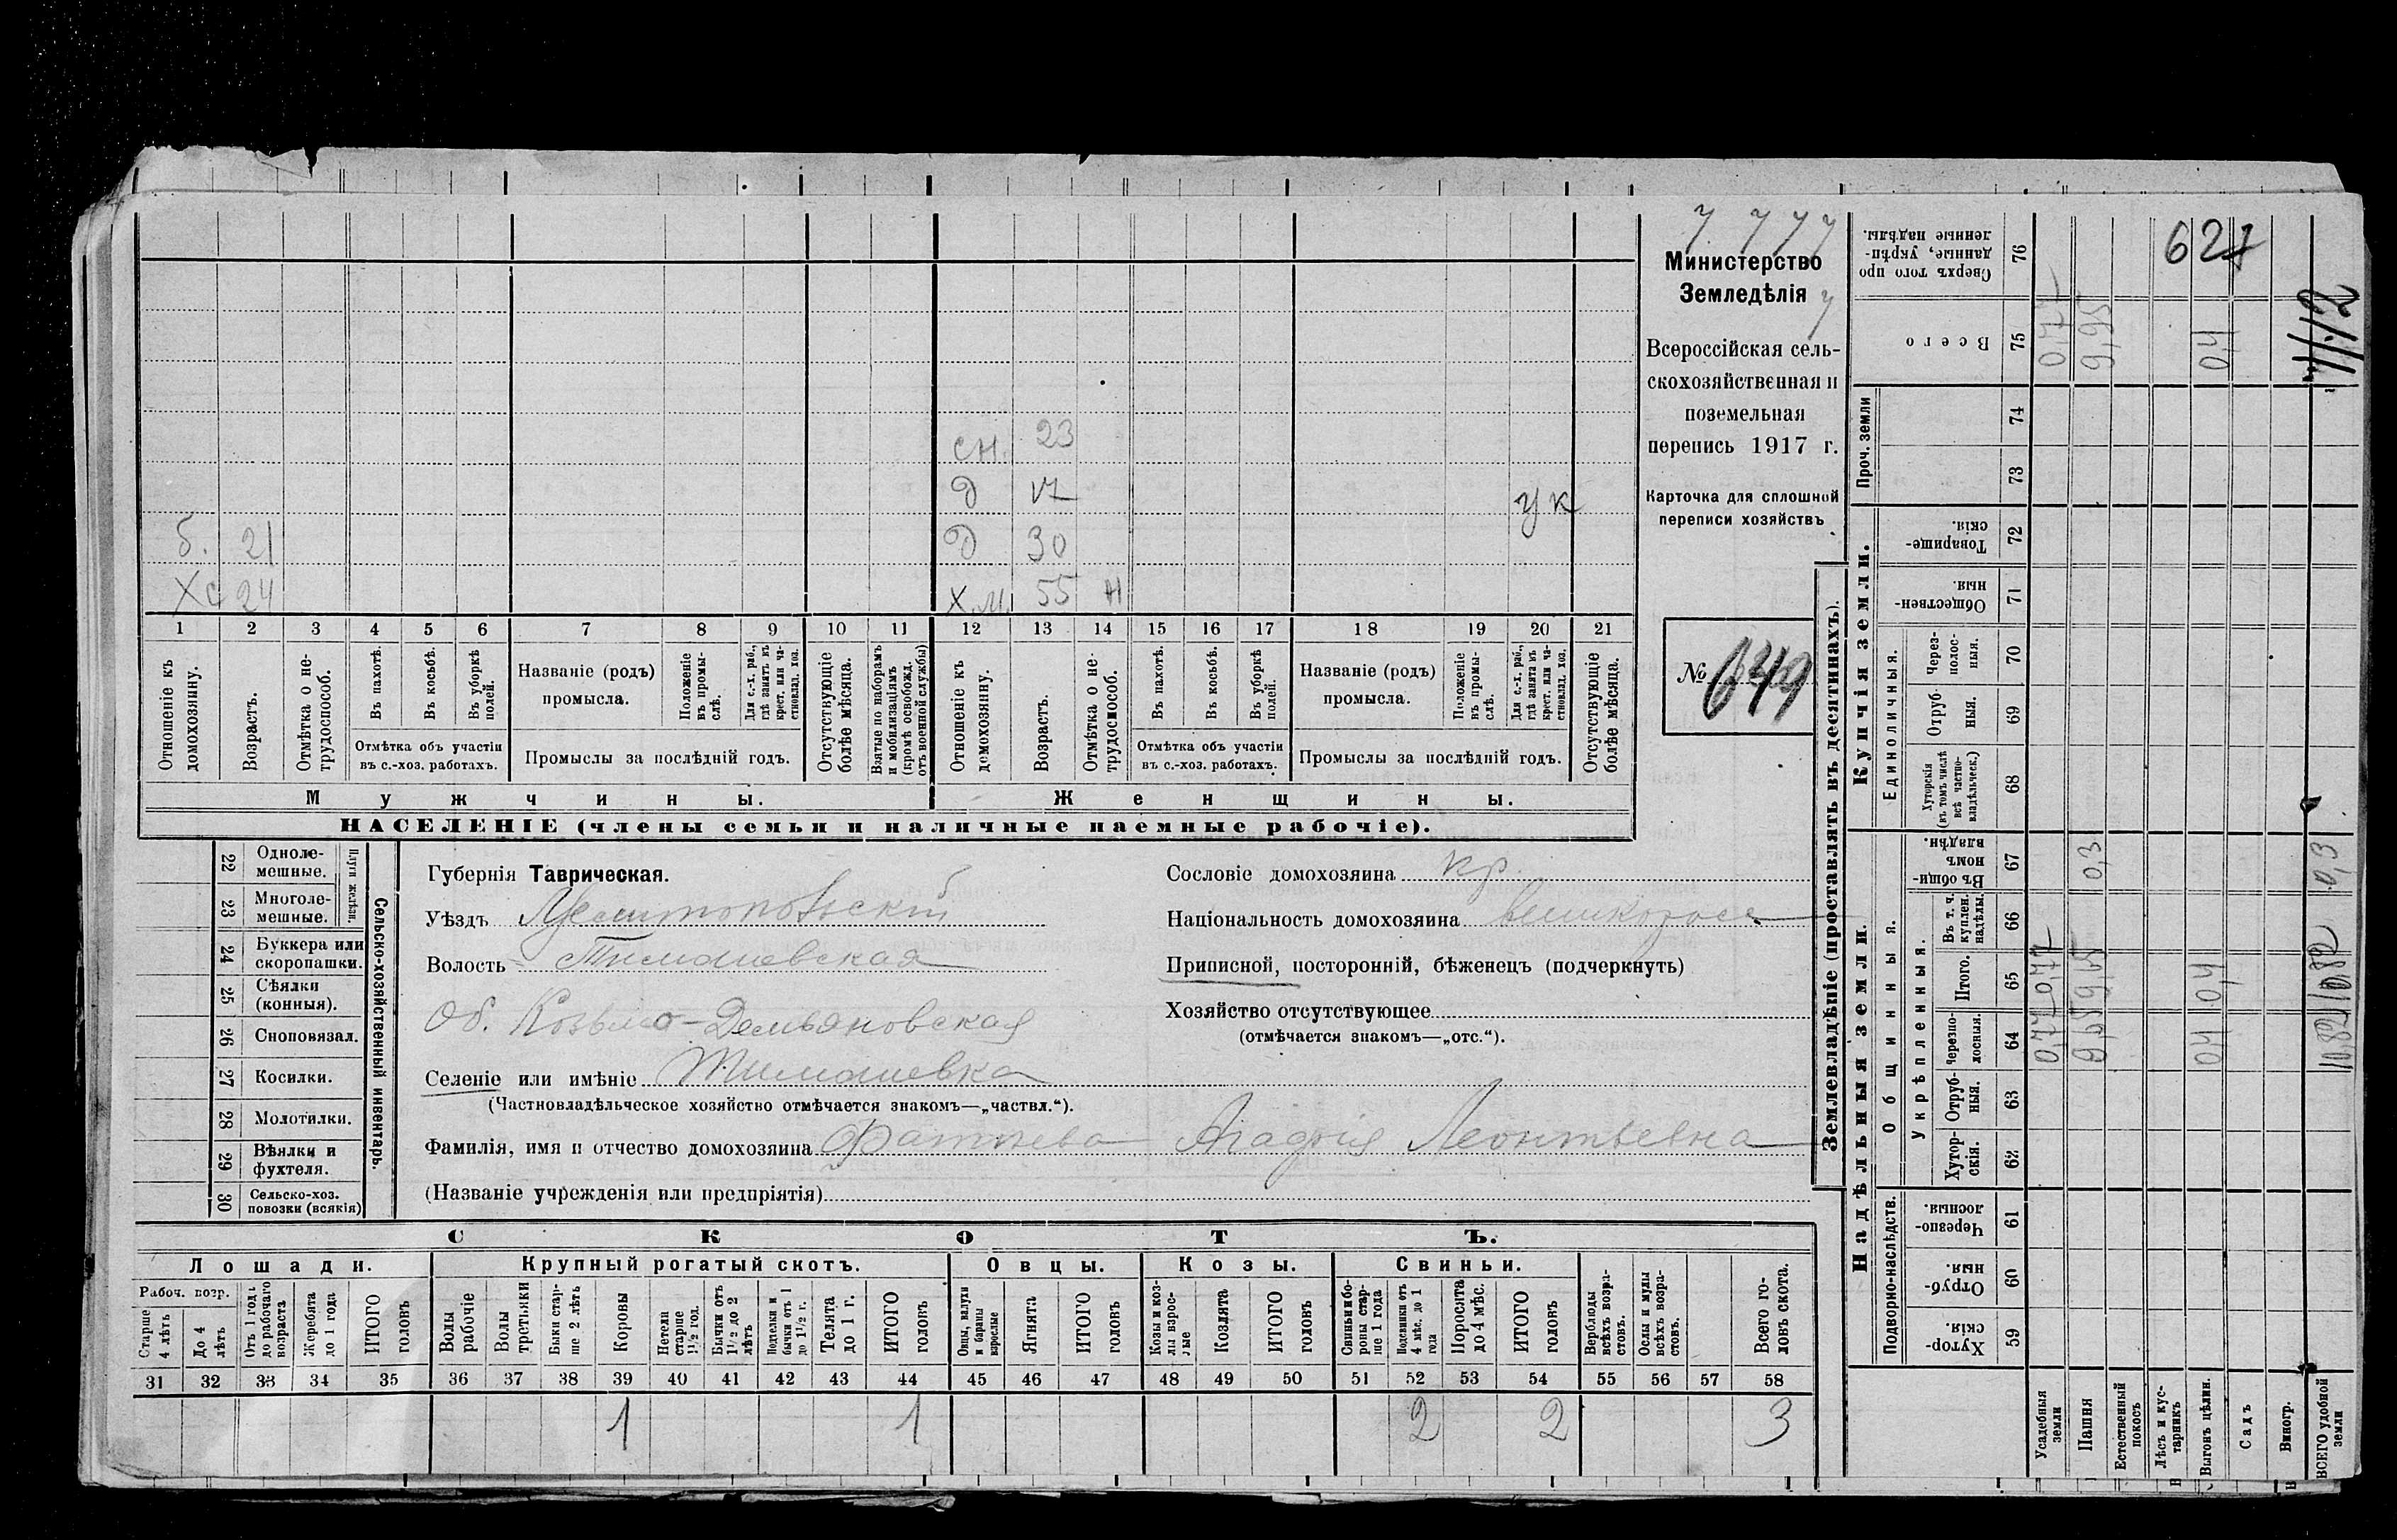 Министерство
Земледѣлія
Всероссійская сель-
скохозяйственная и
поземельная
перепись 1917 г.
Карточка для сплошной
переписи хозяйствъ
№ 649
сн. 23
д 17
ук
б. 21
д 30
Хс 24
Х.м. 55 н
1 2 3 4 5 6 7 8 9 10 11 12 13 14 15 16 17 18 19 20 21
Отношеніе къ домохозяину.
Возрастъ.
Отмѣтка о не-трудоспособ.
Въ пахотѣ.
Въ косьбѣ.
Въ уборкѣ полей.
Отмѣтка объ участіи
въ с.-хоз. работахъ.
Названіе (родъ)
промысла.
Положеніе въ промы-слѣ.
Для с.-х. раб., гдѣ занятъ въ крест. или ча-стновлад. хоз.
Промыслы за послѣдній годъ.
Отсутствующіе болѣе мѣсяца.
Взятые по наборамъ и мобилизаціямъ (кромѣ освобожд. отъ военной службы)
Отношеніе къ домохозяину.
Возрастъ.
Отмѣтка о не-трудоспособ.
Въ пахотѣ.
Въ косьбѣ.
Въ уборкѣ полей.
Отмѣтка объ участіи
въ с.-хоз. работахъ.
Названіе (родъ)
промысла.
Положеніе въ промы-слѣ.
Для с.-х. раб., гдѣ занята въ крест. или ча-стновлад. хоз.
Промыслы за послѣдній годъ.
Отсутствующіе болѣе мѣсяца.
Мужчины.
Женщины.
НАСЕЛЕНІЕ (члены семьи и наличные наемные рабочіе).
22 Одноле-мешные.
23 Многоле-мешные.
Плуги желѣзн.
24 Буккера или скоропашки.
25 Сѣялки (конныя).
26 Сноповязал.
27 Косилки.
28 Молотилки.
29 Вѣялки и фухтеля.
30 Сельско-хоз. повозки (всякія)
Сельско-хозяйственный инвентарь.
Губернія Таврическая.
Уѣздъ Мелитопольскій
Волость Тимошевская
Об. Козьмо-Демьяновская
Селеніе или имѣніе Тимошевка
(Частновладѣльческое хозяйство отмѣчается знакомъ—„частвл.“).
Сословіе домохозяина кр.
Національность домохозяина великоросс
Приписной, посторонній, бѣженецъ (подчеркнуть)
Хозяйство отсутствующее
(отмѣчается знакомъ—„отс.“).
Фамилія, имя и отчество домохозяина Леонтьевна
(Названіе учрежденія или предпріятія)
СКОТЪ.
Лошади.
Крупный рогатый скотъ.
Овцы.
Козы.
Свиньи.
Рабоч. возр.
Старше 4 лѣтъ
До 4 лѣтъ
Отъ 1 года до рабочаго возраста
Жеребята до 1 года
ИТОГО головъ
Волы рабочіе
Волы третьяки
Быки стар-ше 2 лѣтъ
Коровы
Нетели старше 1½ год.
Бычки отъ 1½ до 2 лѣтъ
Подтелки и бычки отъ 1 до 1½ г.
Телята до 1 г.
ИТОГО головъ
Овцы, валухи и бараны взрослые
Ягнята
ИТОГО головъ
Козы и коз-лы взрос-лые
Козлята
ИТОГО головъ
Свиньи и бо-ровы стар-ше 1 года
Подсвинки отъ 4 мѣс. до 1 года
Поросята до 4 мѣс.
ИТОГО головъ
Верблюды всѣхъ возра-стовъ.
Ослы и мулы всѣхъ возра-стовъ.
Всего го-ловъ скота.
31 32 33 34 35 36 37 38 39 40 41 42 43 44 45 46 47 48 49 50 51 52 53 54 55 56 57 58
1 1 2 2 3
Землевладѣніе (проставлять въ десятинахъ).
Сверхъ того про данные, укрѣп-ленные надѣлы. 76
Всего 75 0,77 9,95 0,4
Проч. земли 74 73
Купчія земли.
Товарище-скія. 72
Обществен-ныя. 71
Единоличныя.
Через-полос-ныя. 70
Отруб-ныя. 69
Хуторскія (въ томъ числѣ всѣ частно-владѣльческ.) 68
Надѣльныя земли.
Общинныя.
Въ общин-номъ владѣн. 67 0,3 0,3
Укрѣпленныя.
Въ т. ч. куплен. надѣлы. 66
Итого. 65 0,77 9,65 0,4 10,82
Черезпо-лосныя. 64 0,77 9,65 0,4 10,82
Отруб-ныя. 63
Хутор-скія. 62
Подворно-наслѣдств.
Черезпо-лосныя. 61
Отруб-ныя. 60
Хутор-скія. 59
Усадебныя земли
Пашня
Естественный покосъ
Лѣсъ и кус-тарникъ
Выгонъ цѣлин.
Садъ
Виногр.
ВСЕГО удобной земли
11,12